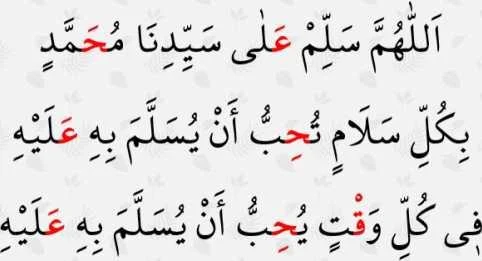 اَللّٰهُمَّ سَلِّمْ عَلٰى سَيِّدِنَا مُحَمَّدٍ
بِكُلِّ سَلَامٍ تُحِبُّ أَنْ يُسَلَّمَ بِهِ عَلَيْهِ
فِى كُلِّ وَقْتٍ يُحِبُّ أَنْ يُسَلَّمَ بِهِ عَلَيْهِ